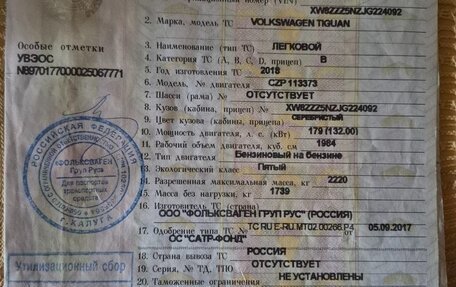 XW8ZZZ5NZJG224092
2. Марка, модель ТС VOLKSWAGEN TIGUAN
Особые отметки
УВЭОС
N8970177000025067771
3. Наименование (тип ТС) ЛЕГКОВОЙ
4. Категория ТС (А, В, С, D, прицеп) B
5. Год изготовления ТС 2018
6. Модель, № двигателя CZP 113373
7. Шасси (рама) № ОТСУТСТВУЕТ
8. Кузов (кабина, прицеп) № XW8ZZZ5NZJG224092
9. Цвет кузова (кабины, прицепа) СЕРЕБРИСТЫЙ
10. Мощность двигателя, л. с. (кВт) 179 (132.00)
11. Рабочий объем двигателя, куб. см 1984
12. Тип двигателя Бензиновый на бензине
13. Экологический класс Пятый
14. Разрешенная максимальная масса, кг 2220
15. Масса без нагрузки, кг 1739
16. Изготовитель ТС (страна)
ООО "ФОЛЬКСВАГЕН ГРУП РУС" (РОССИЯ)
17. Одобрение типа ТС № ТС RU E-RU.MT02.00266.P4 от 05.09.2017
ОС "САТР-ФОНД"
18. Страна вывоза ТС РОССИЯ
19. Серия, № ТД, ТПО ОТСУТСТВУЕТ
20. Таможенные ограничения НЕ УСТАНОВЛЕНЫ
РОССИЙСКАЯ ФЕДЕРАЦИЯ
«ФОЛЬКСВАГЕН
Груп Рус»
Для паспортов
транспортных
средств
г. КАЛУГА
Утилизационный сбор